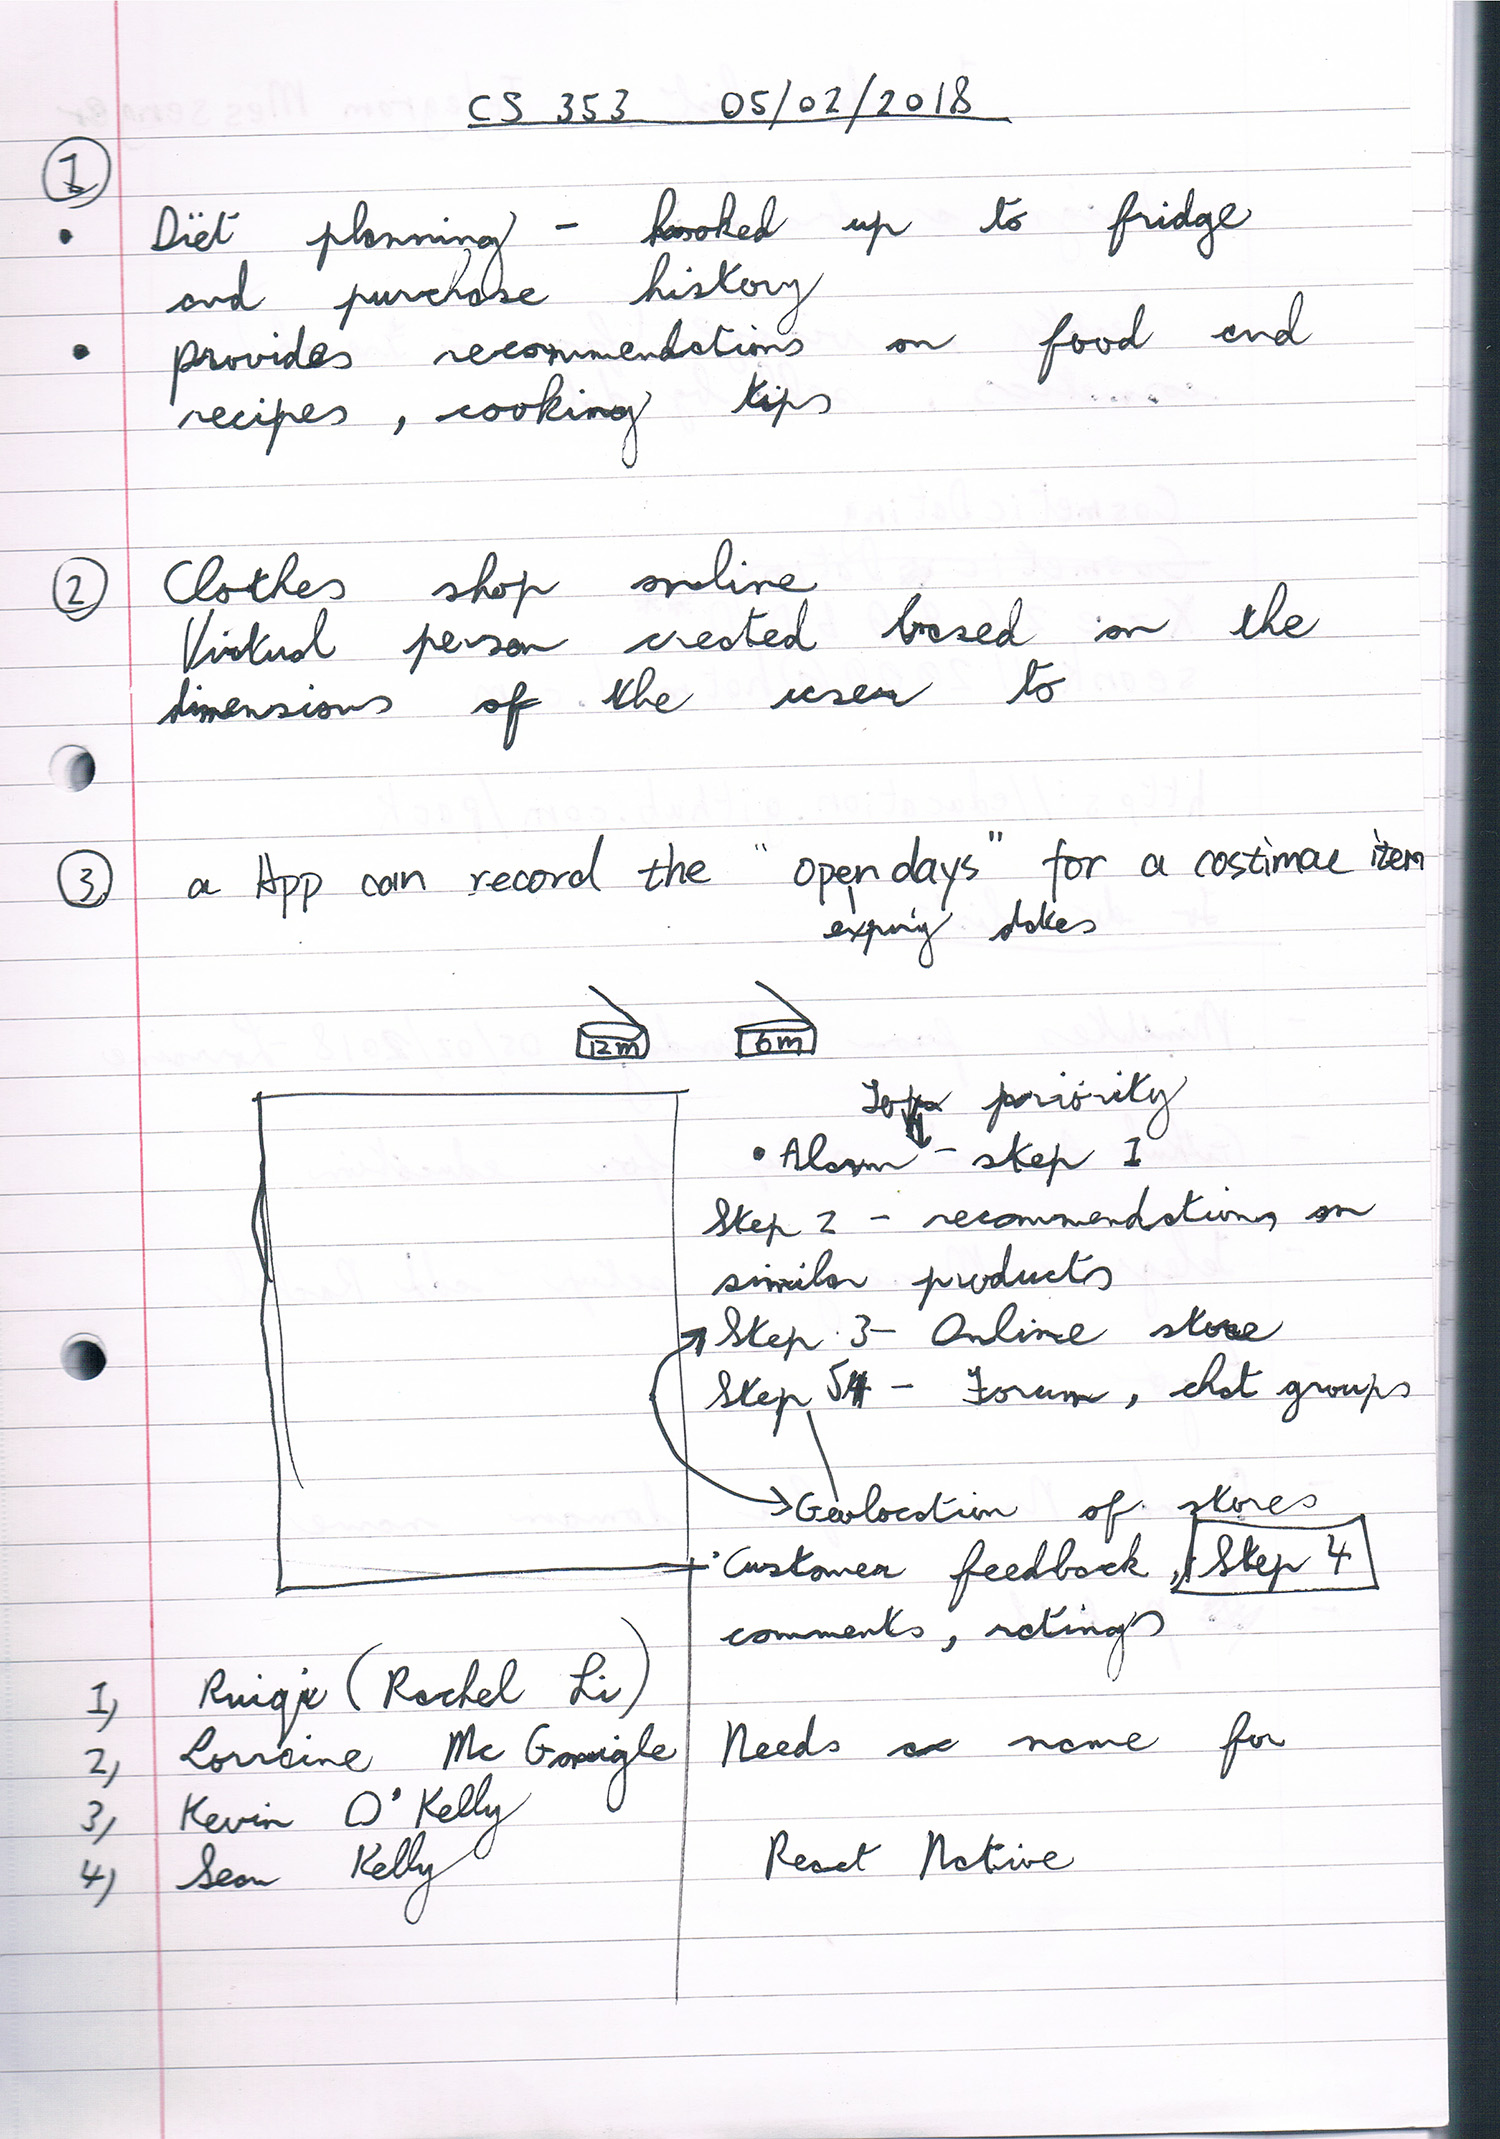 CS 353 05/02/2018
1
• Diet planning - hooked up to fridge
and purchase history
• provides recommendations on food and
recipes, cooking tips
2 Clothes shop online
Virtual person created based on the
dimensions of the user to
3. a App can record the "open days" for a costimae item
expiry dates
12m 6m
Top priority
• Alarm - step 1
Step 2 - recommendations on
similar products
Step 3 - Online store
Step 5 - Forum, chat groups
Geolocation of stores
• Customer feedback, Step 4
comments, ratings
1) Ruiqi (Rachel Li)
2) Lorraine Mc Gonigle Needs a name for
3) Kevin O'Kelly
4) Sean Kelly React Native